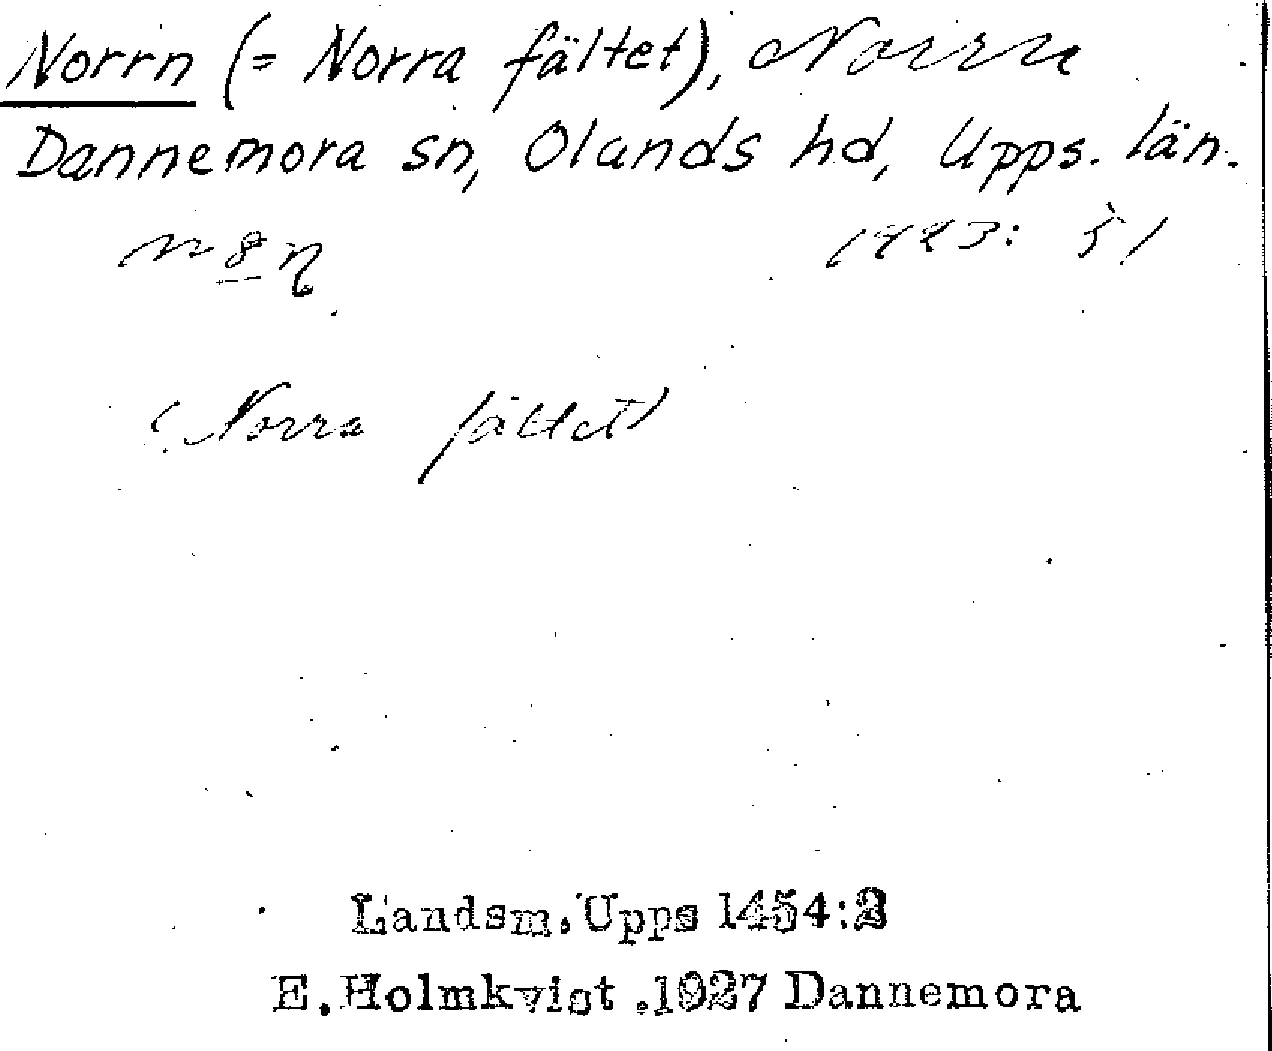 Norrn (= Norra fältet), Norrn
Dannemora sn, Olands hd, Upps. län.
1923: 51
(Norra fältet)
Landsm. Upps 1454:2
E. Holmkvist .1927 Dannemora